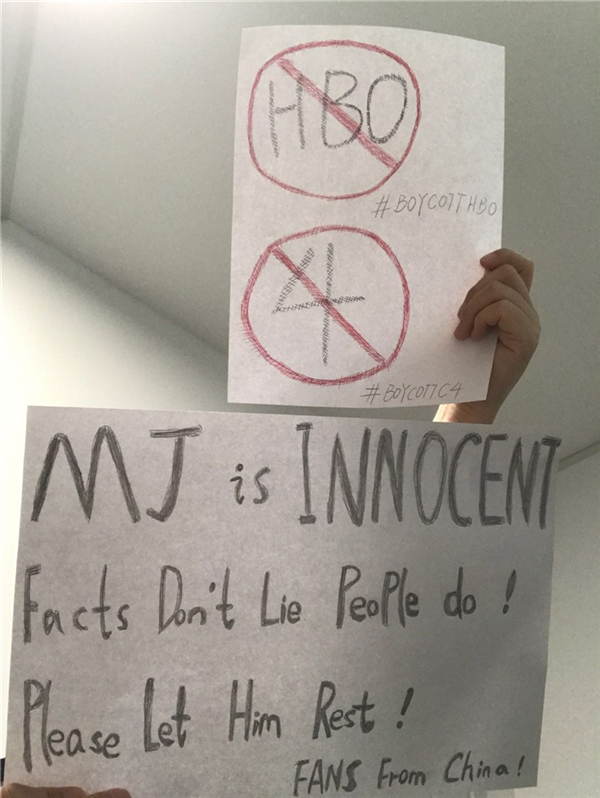 HBO
#BOYCOTTHBO
4
#BOYCOTTC4
MJ is INNOCENT
Facts Don't Lie PeoPle do !
Please Let Him Rest !
FANS From China!